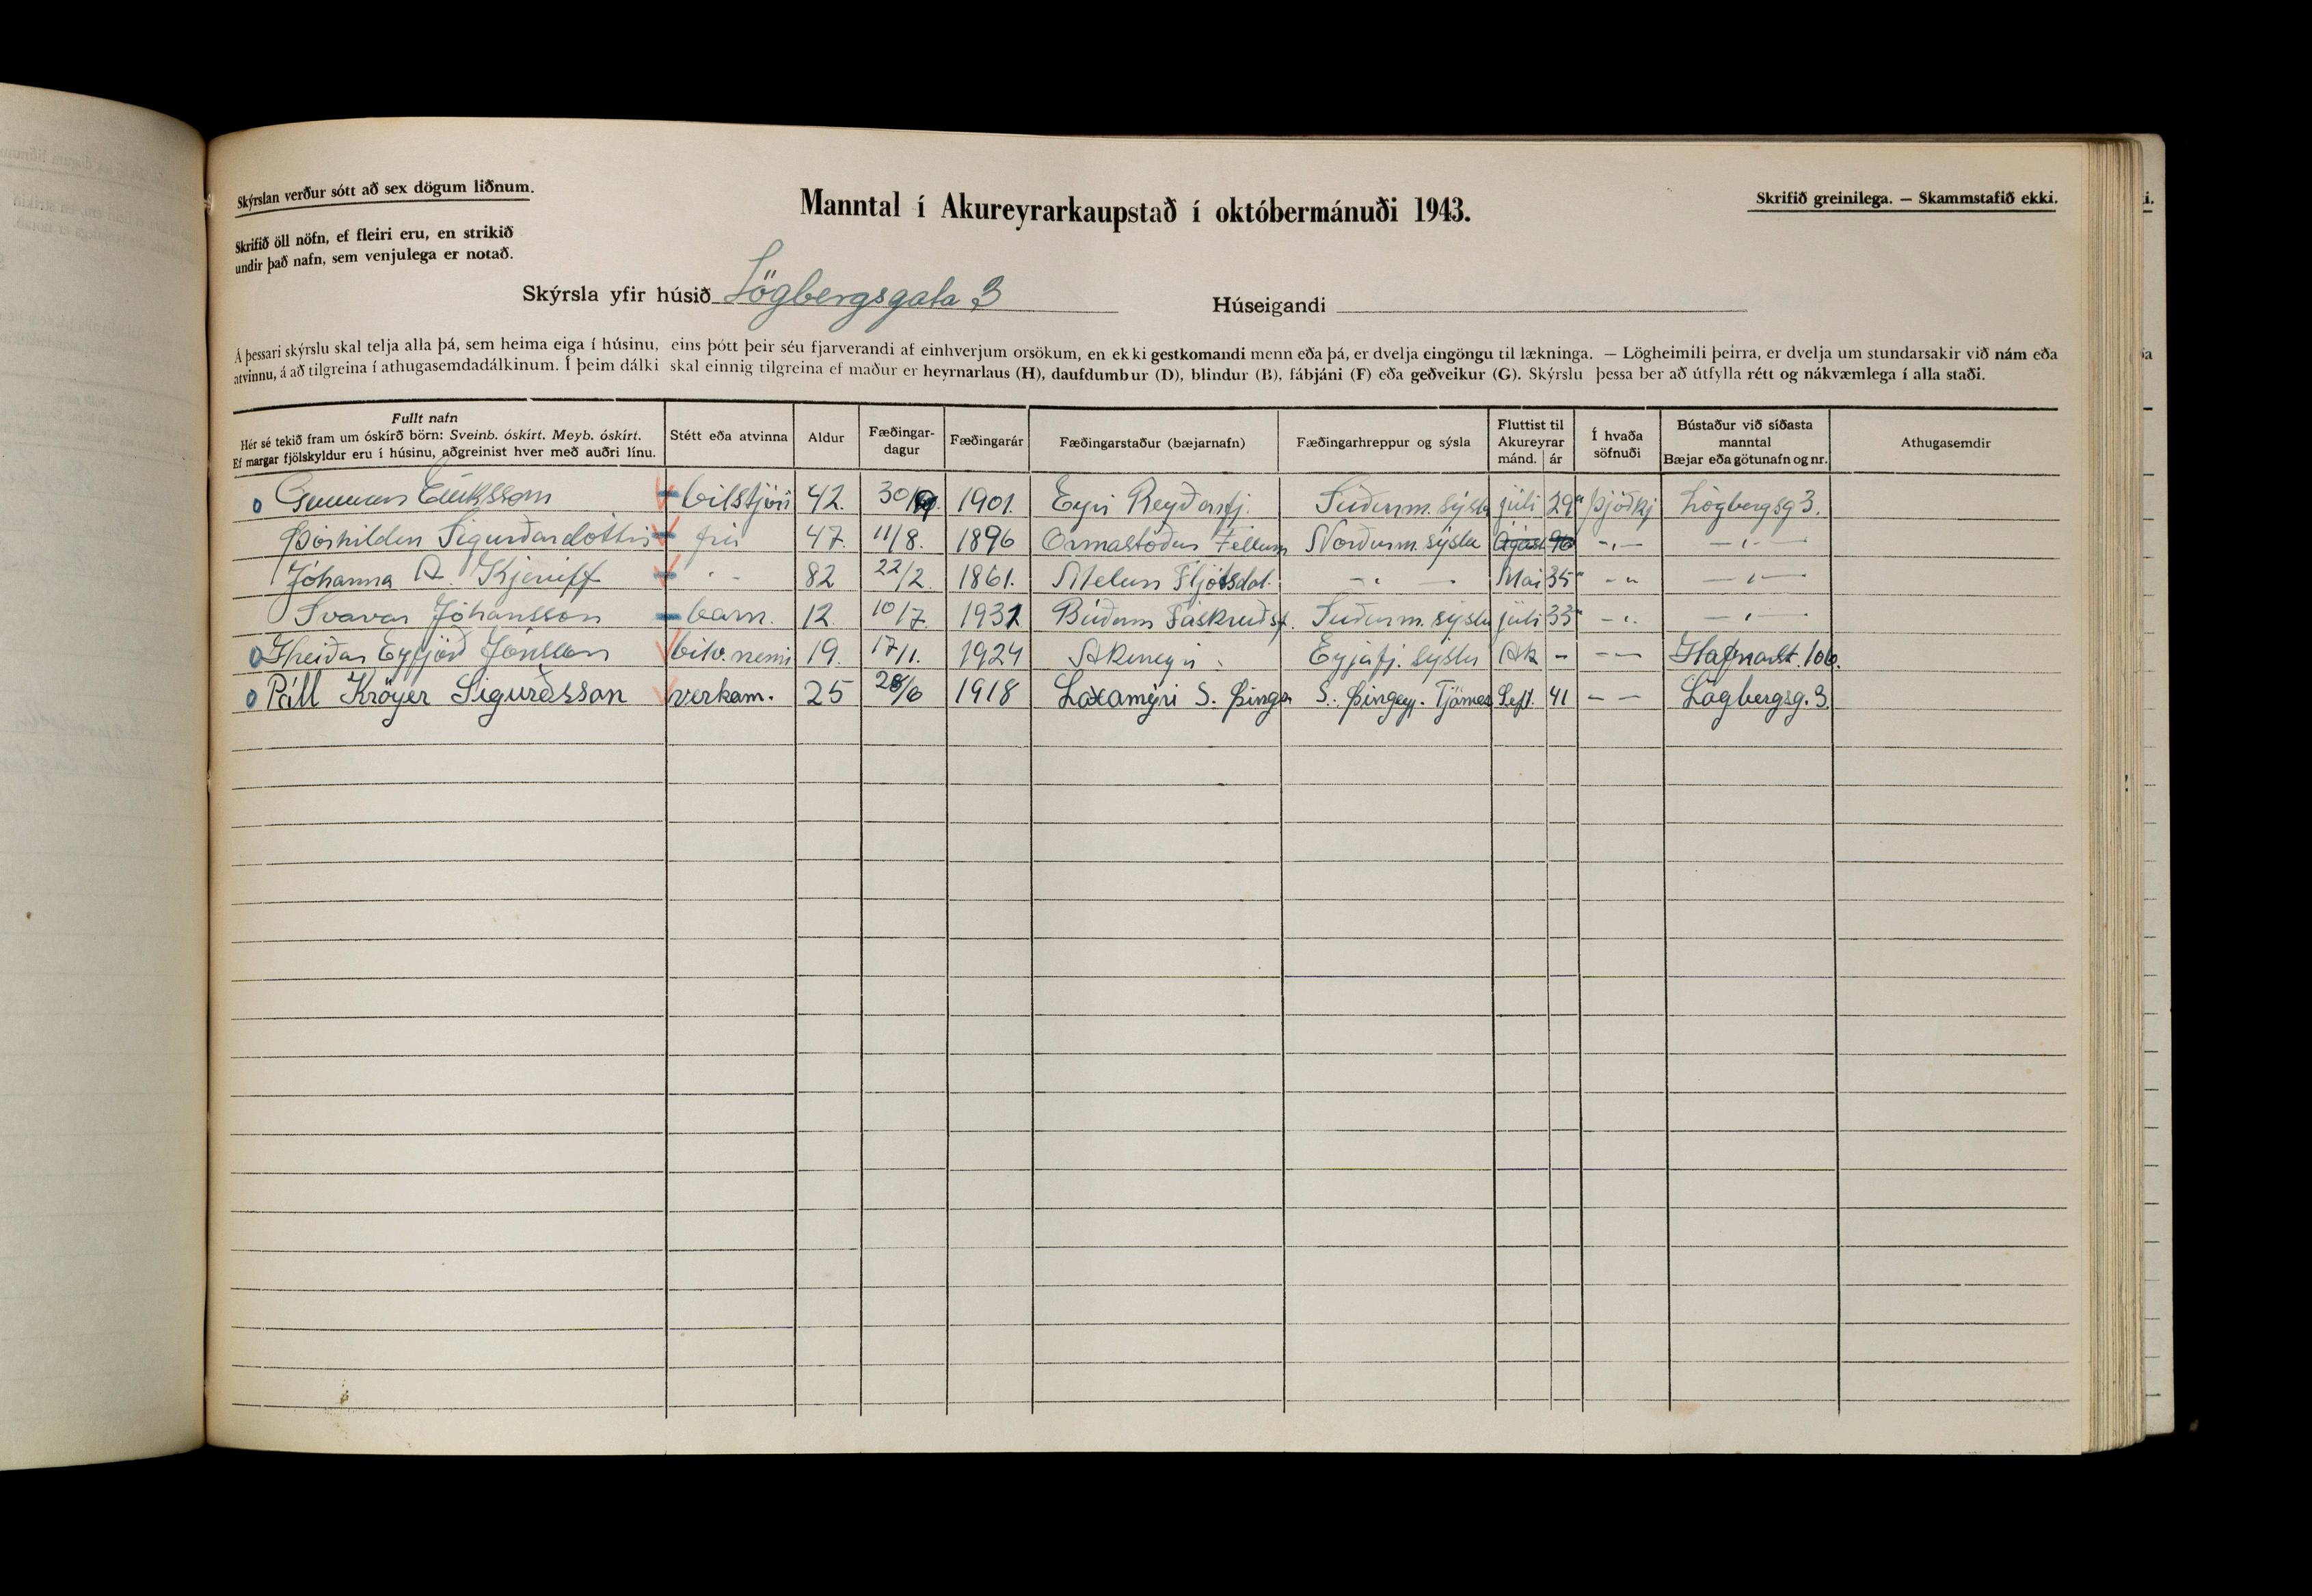 Skýrslan verður sótt að sex dögum liðnum.
Manntal í Akureyrarkaupstað í októbermánuði 1943.
Skrifið greinilega. — Skammstafið ekki.
Skrifið öll nöfn, ef fleiri eru, en strikið
undir það nafn, sem venjulega er notað.
Skýrsla yfir húsið Lögbergsgata 3
Húseigandi
Á þessari skýrslu skal telja alla þá, sem heima eiga í húsinu, eins þótt þeir séu fjarverandi af einhverjum orsökum, en ekki gestkomandi menn eða þá, er dvelja eingöngu til lækninga. — Lögheimili þeirra, er dvelja um stundarsakir við nám eða
atvinnu, á að tilgreina í athugasemdadálkinum. Í þeim dálki skal einnig tilgreina ef maður er heyrnarlaus (H), daufdumbur (D), blindur (B), fábjáni (F) eða geðveikur (G). Skýrslu þessa ber að útfylla rétt og nákvæmlega í alla staði.
Fullt nafn
Hér sé tekið fram um óskírð börn: Sveinb. óskírt. Meyb. óskírt.
Ef margar fjölskyldur eru í húsinu, aðgreinist hver með auðri línu.
Stétt eða atvinna
Aldur
Fæðingar-
dagur
Fæðingarár
Fæðingarstaður (bæjarnafn)
Fæðingarhreppur og sýsla
Fluttist til
Akureyrar
mánd. ár
Í hvaða
söfnuði
Bústaður við síðasta
manntal
Bæjar eða götunafn og nr.
Athugasemdir
Gunnar Eiríksson bílstjóri 42. 30/ 1901. Eyri Reyðarfj. Suðurm. sýsla júli 29 Þjóðkj Lögbergsg 3.
Þórhildur Sigurðardóttir frú 47. 11/8. 1896 Ormastöðum Fellum Norðurm. sýslu Ágúst — " — — " —
Jóhanna A. Kjerúlf — " — 82 22/2. 1861. Melum Fljótsdal. — " — Mai 35 — " — — " —
Svavar Jóhansson barn. 12. 10/7. 1931 Búðum Fáskruðsf. Suðurm. sýslu júli 33 — " — — " —
Heiðar Eyfjörð Jónsson bifv. nemi 19. 17/1. 1924 Akureyri Eyjafj. sýslu Ak - — — Hafnarst. 106.
Páll Kröyer Sigurðsson verkam. 25 28/6 1918 Laxamýri S. Þing S. Þingey. Tjörnes Sept. 41 — — Lögbergsg. 3.